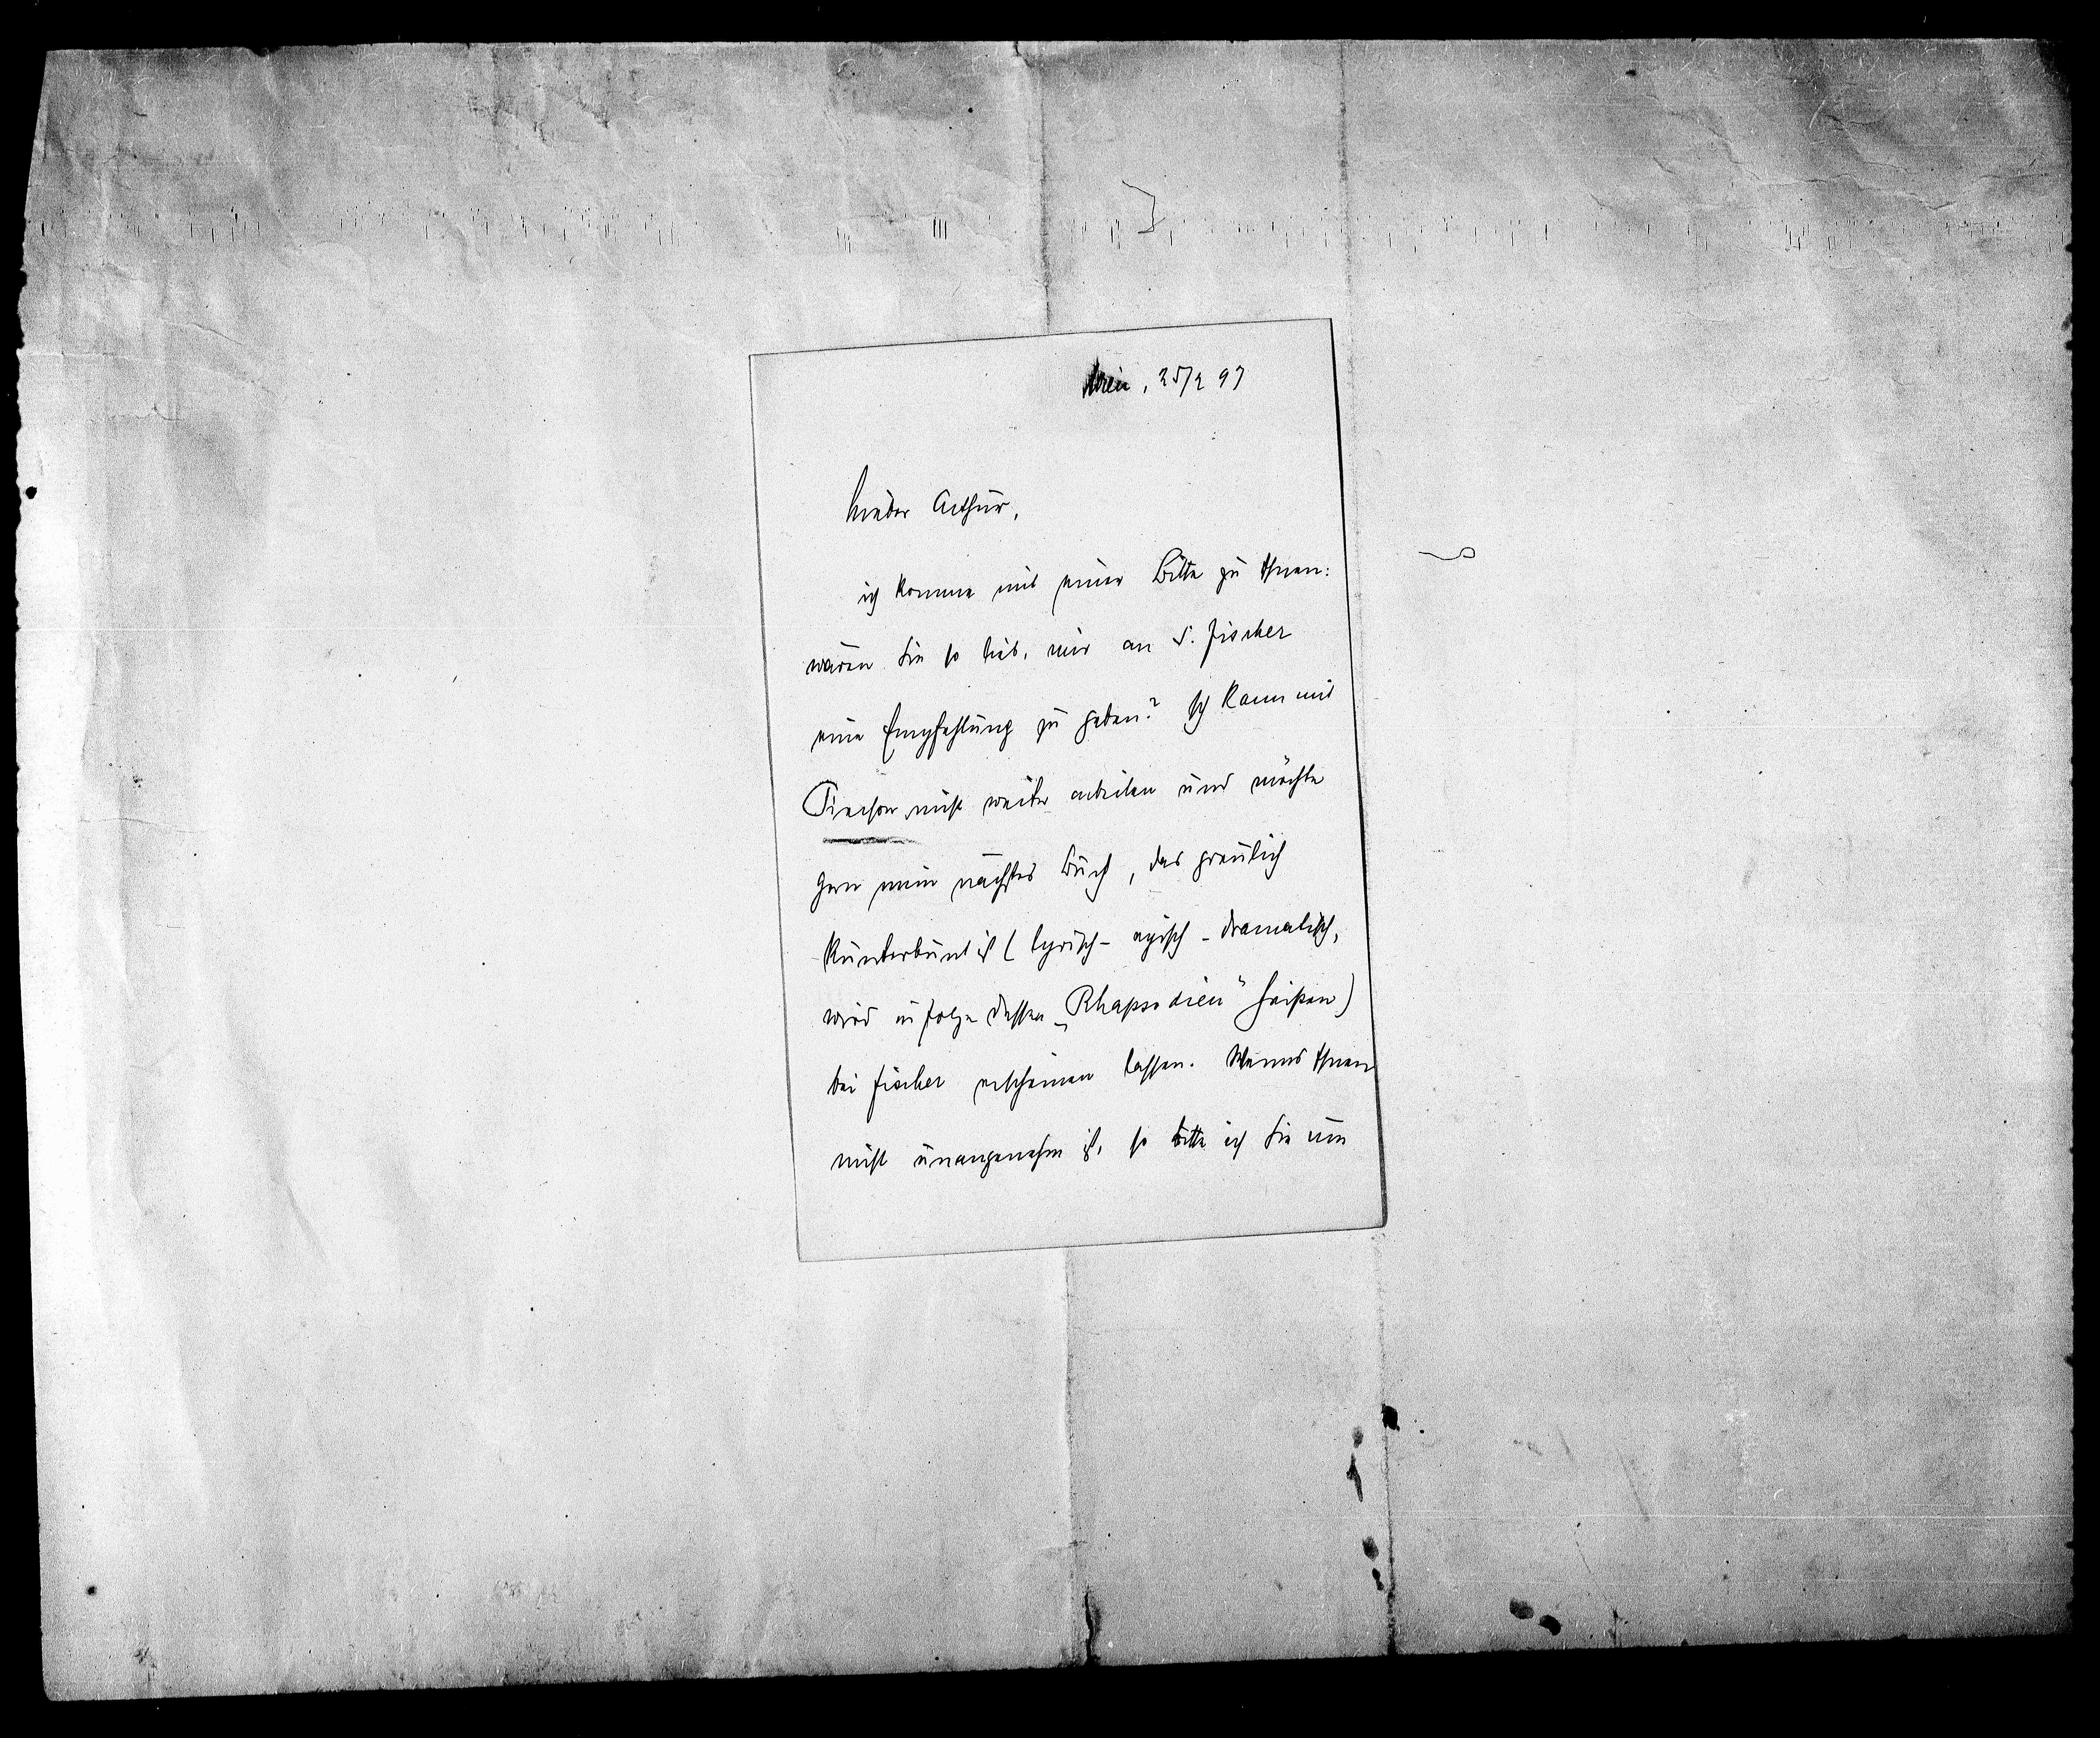 Wien, 25/2 97
Lieber Arthur,
ich komme mit einer Bitte zu Ihnen:
wären Sie so lieb, mir an S. Fischer
eine Empfehlung zu geben? Ich kann mit
Pierson nicht weiter arbeiten und möchte
gern mein nächstes Buch, das greulich
kunterbunt ist (lyrisch-episch-dramatisch,
wird in Folge dessen „Rhapsodien“ heißen)
bei Fischer erscheinen lassen. Wenns Ihnen
nicht unangenehm ist, so bitte ich Sie um